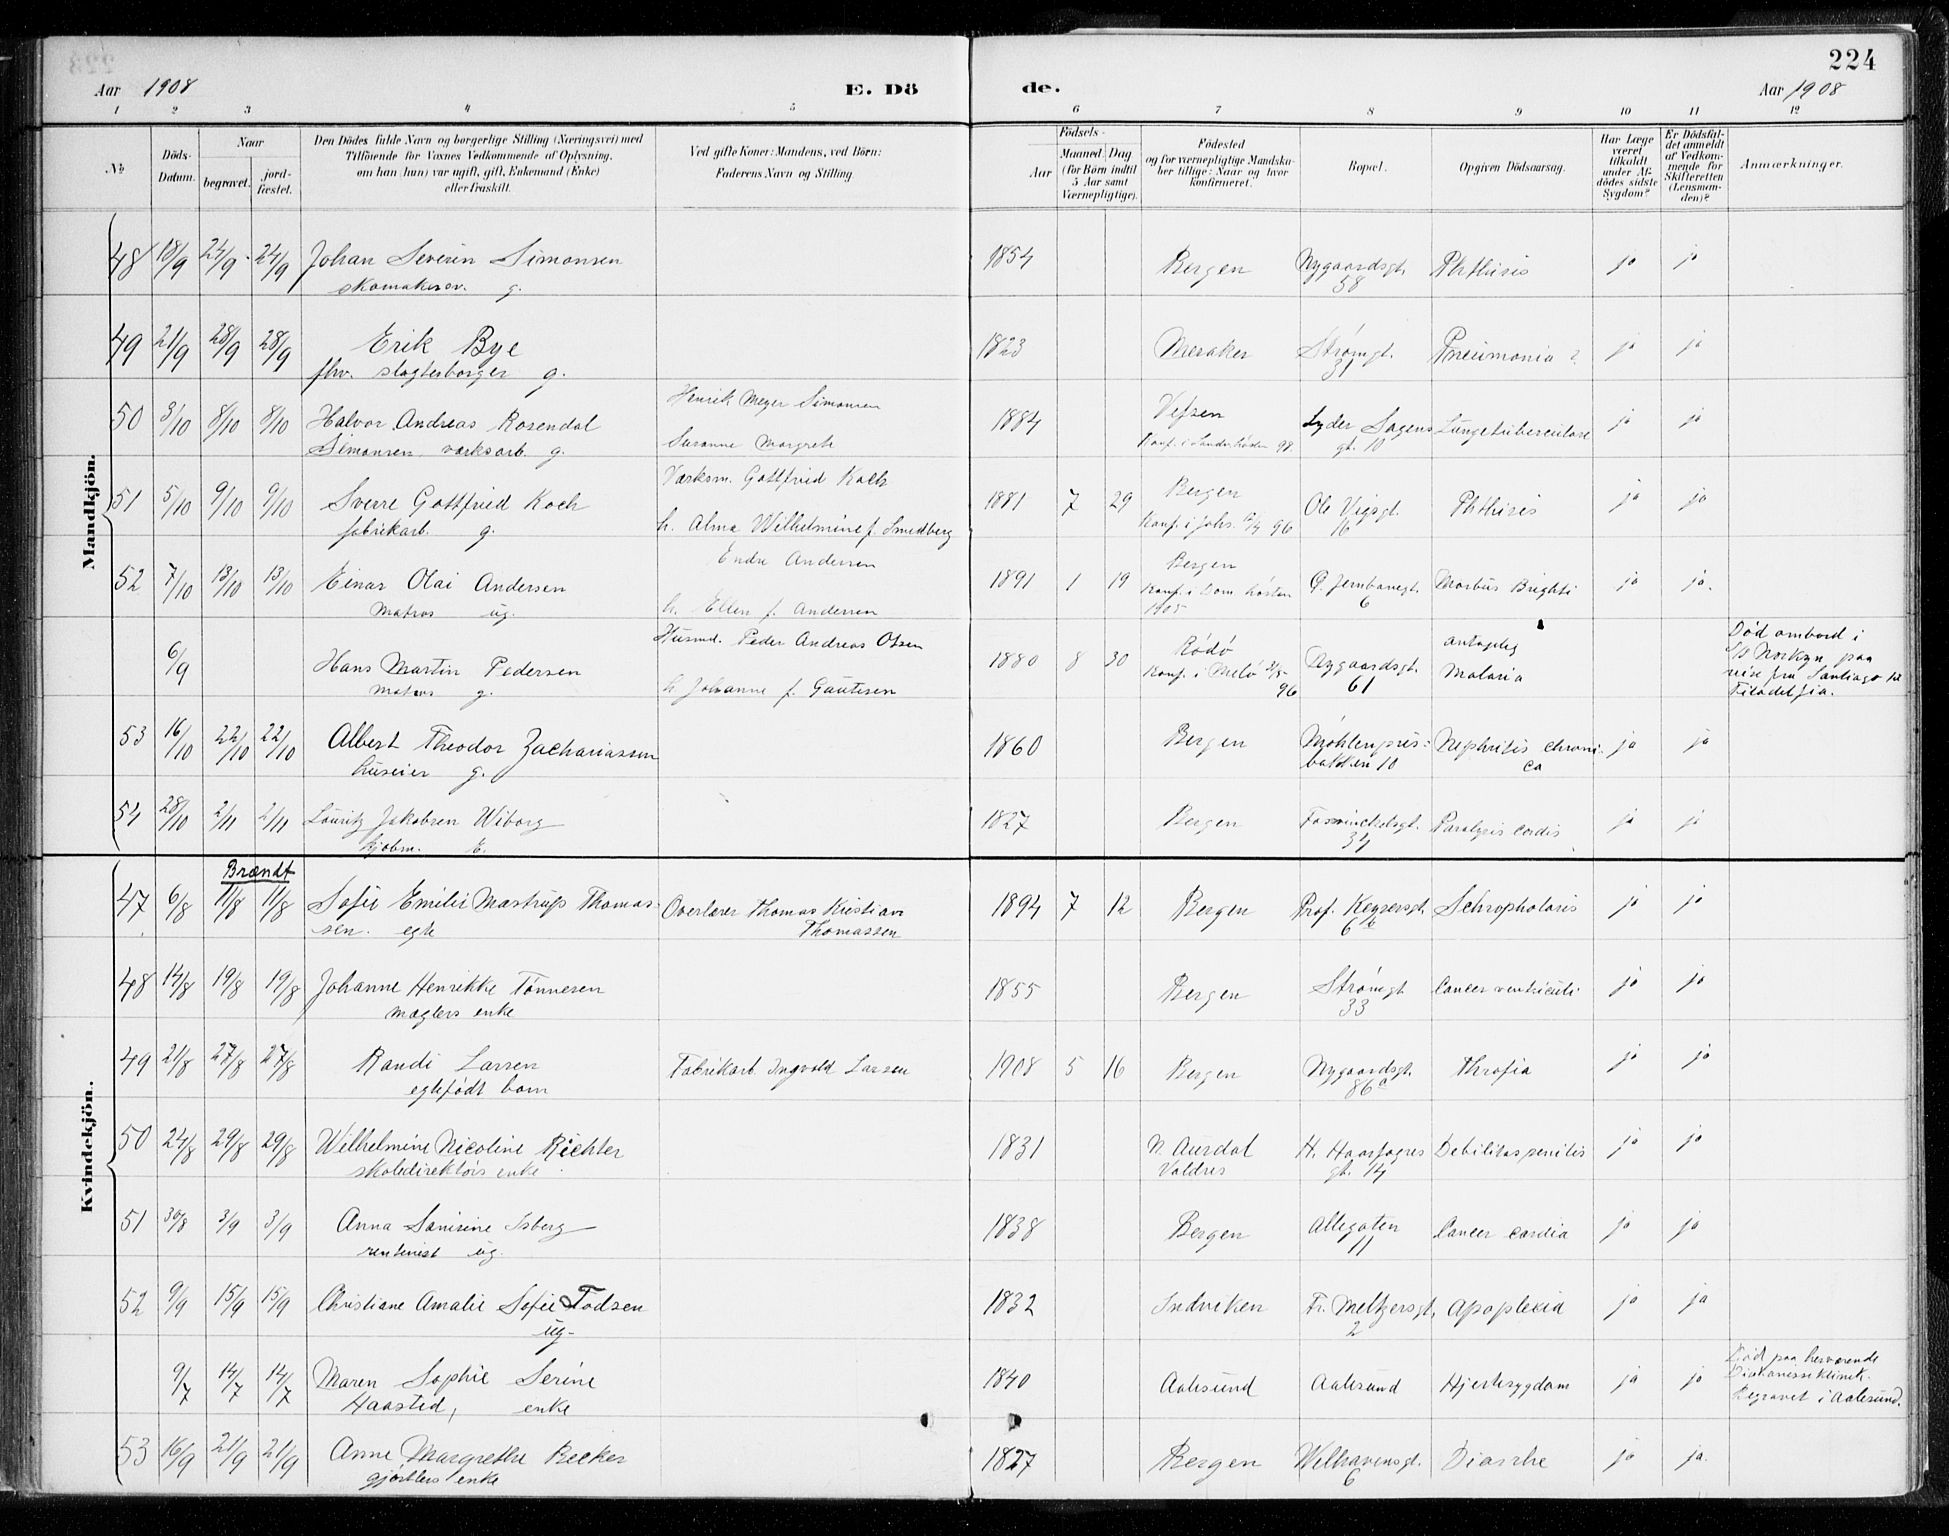 224
Aar 1908 E. Dö de. Aar 1908
1 2 3 4 5 6 7 8 9 10 11 12
No.
Döds-Datum.
Naar
begravet.
jordfæstet.
Den Dödes fulde Navn og borgerlige Stilling (Næringsvei) med
Tilföiende for Voxnes Vedkommende af Oplysning,
om han (hun) var ugift, gift, Enkemand (Enke)
eller fraskilt.
Ved gifte Koner: Mandens, ved Börn:
Faderens Navn og Stilling.
Födsels-
Aar
Maaned Dag
(for Börn indtil
5 Aar samt
Værnepligtige).
Födested
og for værnepligtige Mandska-
ber tillige: Naar og hvor
konfirmeret.
Bopæl.
Opgiven Dödsaarsag.
Har Læge
været
tilkaldt
under Af-
dödes sidste
Sygdom?
Er Dödsfal-
det anmeldt
af Vedkom-
mende for
Skifteretten
(Lensman-
den)?
Anmærkninger.
Mandkjön.
48 18/9 24/9 24/9 Johan Severin Simonsen 1854 Bergen Nygaardsgt. Phthisis ja ja
skomakersv. g. 58
49 21/9 28/9 28/9 Erik Bye 1823 Meraker Strømgt. Pneumonia ? ja ja
fhv. slagterborger g. 31
Henrik Meyer Simonsen
50 3/10 8/10 8/10 Halvor Andreas Rosendal 1884 Vefsen Lyder Sagens Lungetuberculose ja ja
Simonsen værksarb. g. Susanne Margreth gt. 10
Værksm. Gottfried Koch
51 5/10 9/10 9/10 Sverre Gottfried Koch 1881 7 29 Bergen Ole Vigsgt. Phthisis ja ja
fabrikarb. g. h. Alma Wilhelmine f. Smedberg Konf. i Johs. 96 16
Endre Andersen
52 7/10 13/10 13/10 Einar Olai Andersen 1891 1 19 Bergen G. Jernbanegt. Morbus Brighti ja ja.
Matros ug. h. Ellen f. Andersen Konf. i Dom. høsten 1905 6
Husmd. Peder Andreas Olsen
6/9 Hans Martin Pedersen 1880 8 30 Rødø Nygaardsgt. antagelig Død ombord i
Matros g. h Johanne f. Gautesen Konf. i Melø 96 61 Malaria S/S Norkyn paa
reise fra Santiago til
Filadelfia.
53 16/10 22/10 22/10 Albert Theodor Zachariassen 1860 Bergen Møhlenpris- Nephritis chroni- ja ja
huseier g. bakken 10 ca
54 28/10 2/11 2/11 Lauritz Jakobsen Wiborg 1827 Bergen Fosswinckelsgt. Paralysis cordis ja ja
kjøbm. E. 34
Kvindekjön.
Brændt
47 6/8 11/8 11/8 Sofie Emilie Mastrup Thomas- Overlærer Thomas Kristian 1894 7 12 Bergen Prof. Keysersgt. ja ja
sen. egte Thomassen 6b
48 14/8 19/8 19/8 Johanne Henrikke Tønnesen 1855 Bergen Strømgt. Cancer ventriculi ja ja
mæglers enke 33
49 21/8 27/8 27/8 Randi Larsen Fabrikarb. Ingvald Larsen 1908 5 16 Bergen Nygaardsgt. Throfia ja ja
egtefødt barn 86c
50 24/8 29/8 29/8 Wilhelmine Nicoline Richter 1831 N. Aurdal H. Haarfagres Debilitas senilis ja ja
skoledirektørs enke Valdres gt. 14
51 30/8 3/9 3/9 Anna Isberg 1838 Bergen Allegaten Cancer cardia ja ja
rentenist ug. 11
52 9/9 15/9 15/9 Christiane Amalie Sofie Todsen 1832 Indviken Fr. Meltzersgt. Apoplexia ja ja
ug. 2
9/7 14/7 14/7 Maren Sophie Serine 1840 Aalesund Aalesund Hjertesygdom ja ja Død paa herværende
Haasted, enke Diakonisseklinik.
Begravet i Aalesund.
53 16/9 21/9 21/9 Anne Margrethe Becker 1827 Bergen Welhavensgt. Diarrhe ja ja.
gjørtlers enke 6